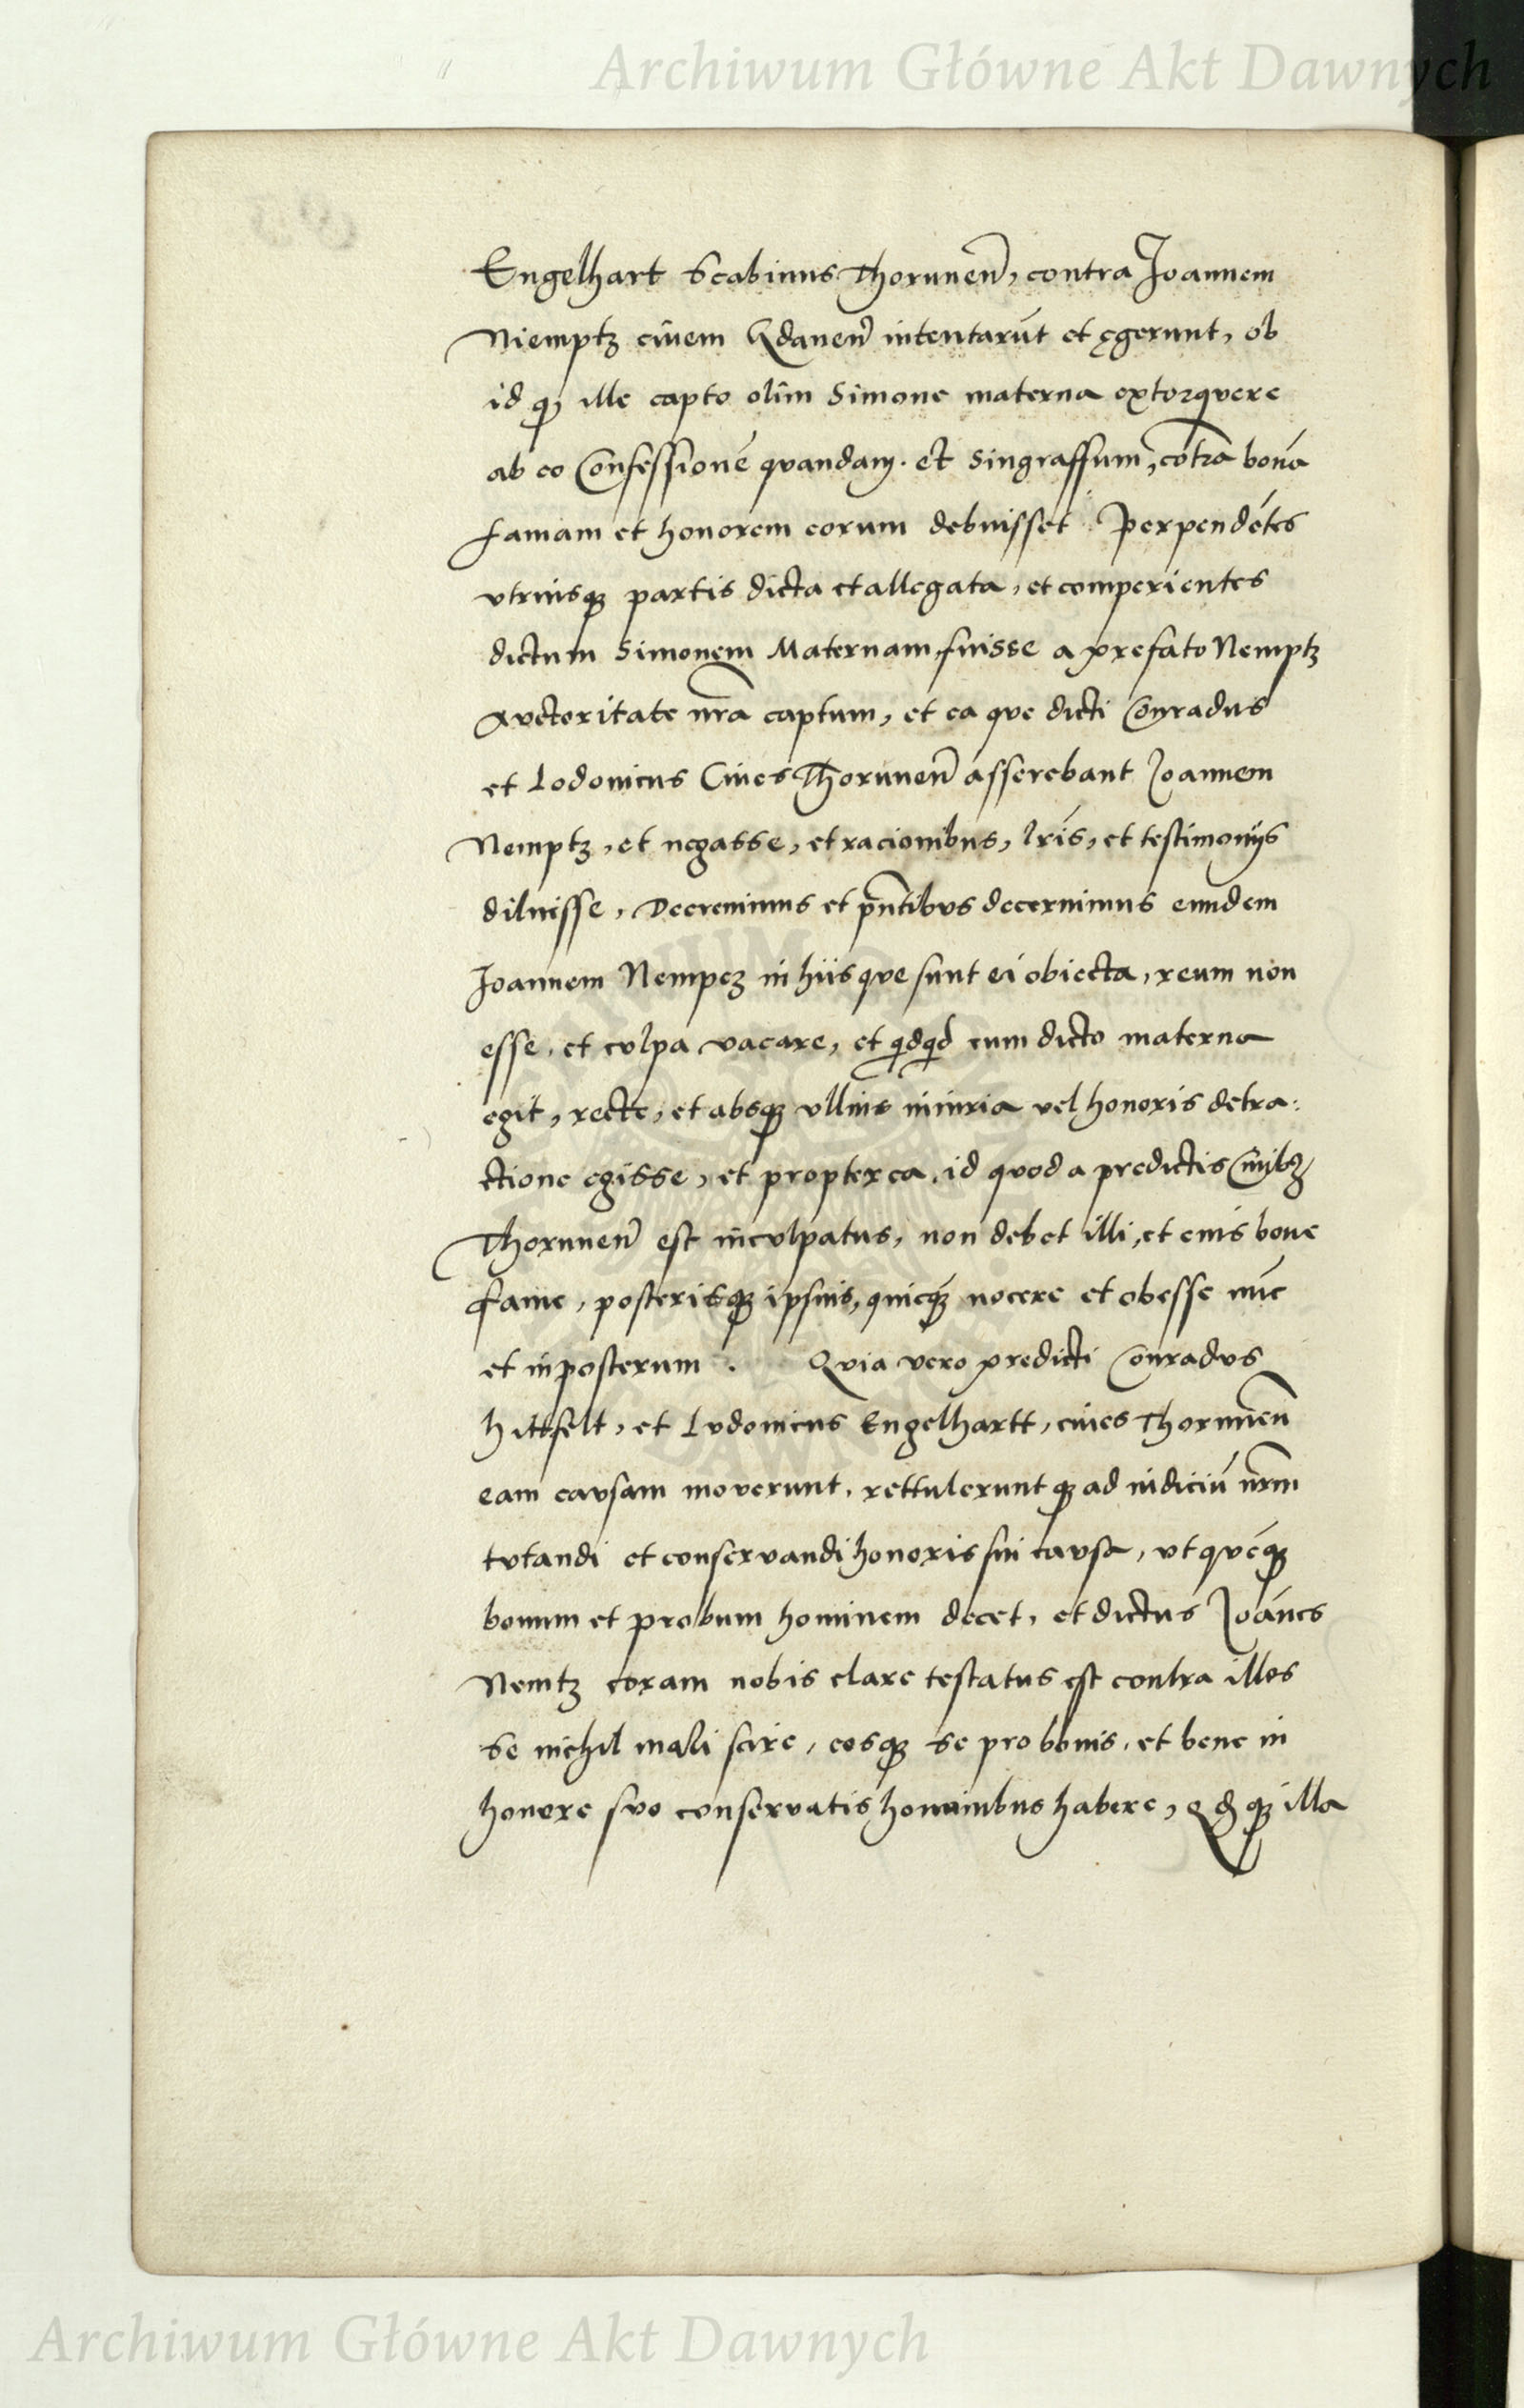 Archiwum Główne Akt Dawnych
Engelhart Scabinus Thorunen̄, contra Joannem
Niemptz civem Gdanen̄ intentarūt et ęgerunt, ob
id qꝫ ille capto olim Simone materna extorqvere
ab eo Confessionē qvandam. et Singraffum, cōtra bonā
famam et honorem eorum debuisset. Perpendētes
vtriusqꝫ partis dicta et allegata, et comperientes
dictum Simonem Maternam, fuisse a prefato Nemptz
Avctoritate nr̄a captum, et ea qve dicti Conradus
et Lodouicus Ciues Thorunen̄ asserebant Joannem
Nemptz, et negasse, et racionibus, lr̄is, et testimonijs
diluisse, Decreuimus et pn̄tibvs decernimus eundem
Joannem Nempcz in hiis qve sunt ei obiecta, reum non
esse, et cvlpa vacare, et qͥdqͥd cum dicto materna
egit, recte, et absqꝫ vllius iniuria vel honoris detra:
ctione egisse, et propterea, id qvod a predictis Ciuibꝫ
Thorunen̄ est incvlpatus, non debet illi, et eius bone
fame, posterisqꝫ ipsius, quicqꝫ̄ nocere et obesse nūc
et inposterum . Qvia vero predicti Conradvs
hittfelt, et Lvdouicus Engelhartt, ciues Thorunen̄
eam cavsam moverunt, rettuleruntqꝫ ad iudiciū nr̄m
tvtandi et conservandi honoris sui cavsa, vt qvēqꝫ
bonum et probum hominem decet, et dictus Joānes
Nemtz coram nobis clare testatus est contra illos
se nichil mali scire, eosqꝫ se pro bonis, et bene in
honore svo conservatis hominibus habere, Qđqꝫ illa
Archiwum Główne Akt Dawnych